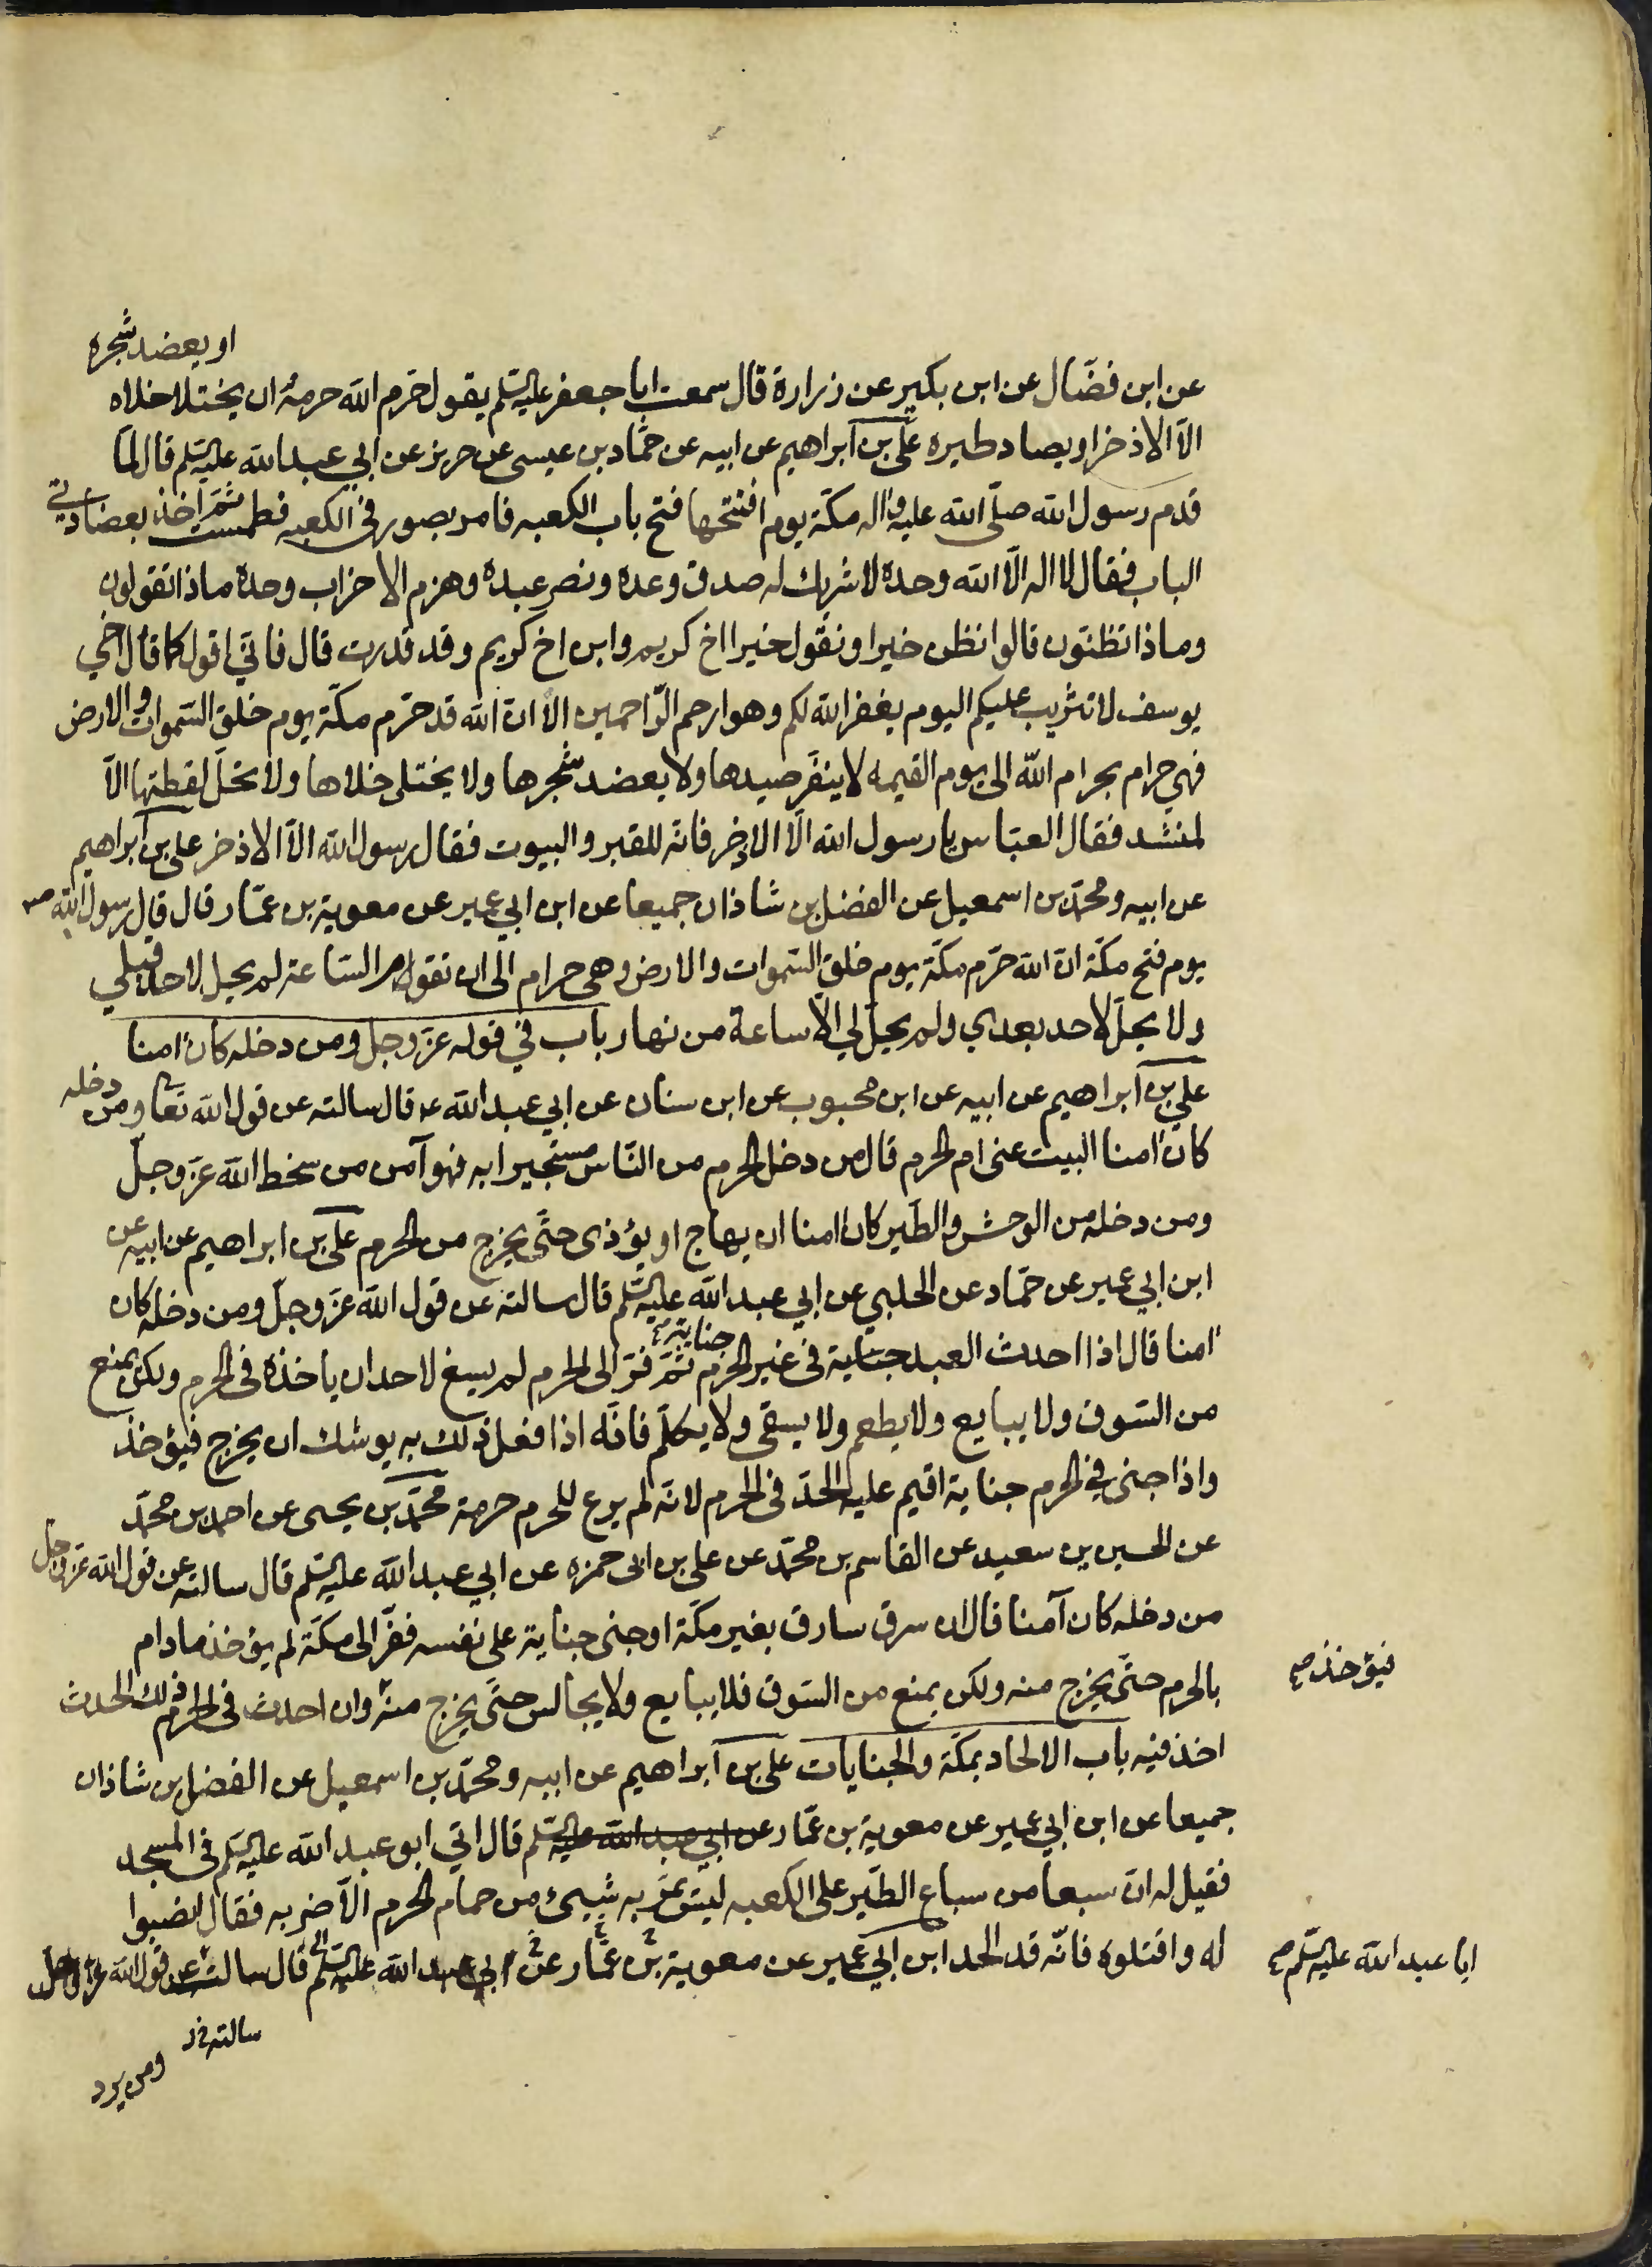 او يعضد شجره
عن ابن فضّال عن ابن بكير عن زرارة قال سمعت ابا جعفر عليه السّلم يقول حرّم الله حرمه ان يختلا خلاه
الّا الاذخر او يصاد طيره علي بن ابراهيم عن ابيه عن حمّاد بن عيسى عن حريز عن ابي عبد الله عليه السّلم قال لمّا
قدم رسول الله صلّى الله عليه واله مكّة يوم افتتحها فتح باب الكعبه فامر بصور في الكعبه فطمست ثمّ اخذ بعضادتي
الباب فقال لا اله الّا الله وحده لا شريك له صدق وعده ونصر عبده وهزم الاحزاب وحده ماذا تقولون
وماذا تظنّون قالوا نظن خيرا ونقول خيرا اخ كريم وابن اخ كريم وقد قدرت قال فانّي اقول كما قال اخي
يوسف لا تثريب عليكم اليوم يغفر الله لكم وهو ارحم الرّاحمين الا انّ الله قد حرّم مكّة يوم خلق السّموات والارض
فهي حرام بحرام الله الى يوم القيمه لا ينفّر صيدها ولا يعضد شجرها ولا يختلى خلاها ولا تحلّ لقطتها الّا
لمنشد فقال العبّاس يا رسول الله الّا الاذخر فانّه للقبر والبيوت فقال رسول الله الّا الاذخر علي بن ابراهيم
عن ابيه ومحمّد بن اسمعيل عن الفضل بن شاذان جميعا عن ابن ابي عمير عن معوية بن عمّار قال قال رسول الله ص
يوم فتح مكّة انّ الله حرّم مكّة يوم خلق السّموات والارض وهي حرام الى ان تقوم السّاعة لم يحل لاحد قبلي
ولا يحلّ لاحد بعدي ولم يحلّ لي الّا ساعة من نهار باب في قوله عزّ وجل ومن دخله كان امنا
علي بن ابراهيم عن ابيه عن ابن محبوب عن ابن سنان عن ابي عبد الله ع قال سالته عن قول الله تعا ومن دخله
كان امنا البيت عنى ام الحرم قال من دخل الحرم من النّاس مستجيرا به فهو آمن من سخط الله عزّ وجلّ
ومن دخله من الوحش والطّير كان امنا ان يهاج او يؤذى حتّى يخرج من الحرم علي بن ابراهيم عن ابيه عن
ابن ابي عمير عن حمّاد عن الحلبي عن ابي عبد الله عليه السّلم قال سالته عن قول الله عزّ وجلّ ومن دخله كان
جناية
امنا قال اذا احدث العبد جناية في غير الحرم ثمّ فرّ الى الحرم لم يسغ لاحد ان ياخذه في الحرم ولكن يمنع
من السّوق ولا يبايع ولا يطعم ولا يسقى ولا يكلّم فانّه اذا فعل ذلك به يوشك ان يخرج فيؤخذ
واذا جنى في الحرم جناية اقيم عليه الحدّ في الحرم لانّه لم يرع للحرم حرمة محمّد بن يحيى عن احمد بن محمّد
عن الحسين بن سعيد عن القاسم بن محمّد عن علي بن ابي حمزه عن ابي عبد الله عليه السّلم قال سالته عن قول الله عزّ وجل
من دخله كان آمنا قال ان سرق سارق بغير مكّة او جنى جناية على نفسه ففرّ الى مكّة لم يؤخذ ما دام
بالحرم حتّى يخرج منه ولكن يمنع من السّوق فلا يبايع ولا يجالس حتّى يخرج منه وان احدث في الحرم ذلك الحدث
فيؤخذ
اخذ فيه باب الالحاد بمكّة والجنايات علي بن ابراهيم عن ابيه ومحمّد بن اسمعيل عن الفضل بن شاذان
جميعا عن ابن ابي عمير عن معوية بن عمّار عن ابي عبد الله عليه السّلم قال اتي ابو عبد الله عليه السّلم في المسجد
فقيل له انّ سبعا من سباع الطّير على الكعبه ليس يمرّ به شيئ من حمام الحرم الّا ضربه فقال انصبوا
له واقتلوه فانّه قد الحد ابن ابي عمير عن معوية بن عمّار عن ابي عبد الله عليه السّلم قال سالته عن قول الله عزّ وجل
ابا عبد الله عليه السّلم
سالته
ومن يرد